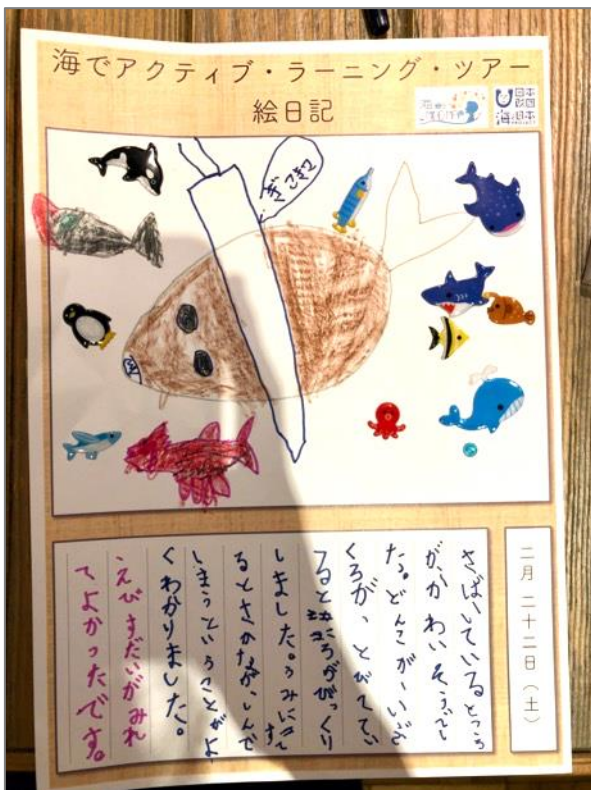 海でアクティブ・ラーニング・ツアー
絵日記
海と
日本
ぎこぎこ
二月二十二日(土)
さばいているところ
が、かわいそうでし
た。どんこがいぶ
くろが、とびでてい
ると
ころがびっくり
しました。うみにすて
るとさかながしんで
しまうということがよ
くわかりました。
えびすだいがみれ
てよかったです。